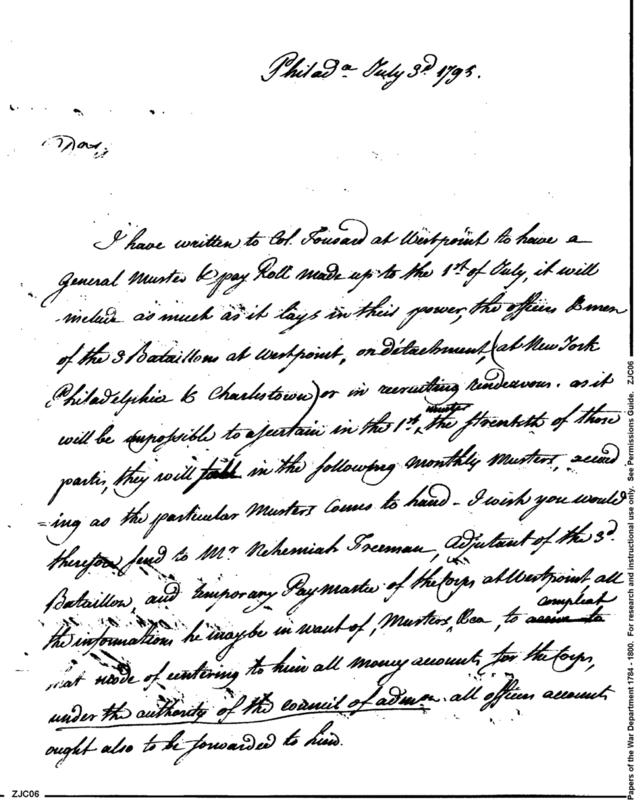 Philada July 3d 1795.
I have written to Col. Tousard at Westpoint to have a
General Muster & pay Roll made up to the 1st of July, it will
include as much as it lays in their power, the officers & men
of the 3 Bataillons at Westpoint, on détachment, (at New York
Philadelphia & Charlestown) or in recruiting rendevous. as it
muster
will be impossible to assertain in the 1st, the strenkth of those
partis, they will in the following monthly Musters, accord
=ing as the particular Musters Coms to hand - I wish you would
therefore send to Mr Nehemiah Freeman, adjutant of the 3d.
Bataillon, and temporary Pay Master of the Corps at Westpoint all
compleat
the informations he may be in want of, Musters, &ca, to
that mode of centering to him all money accounts, for the Corps,
under the authority of the council of admon all officers accounts
ought also to be forwarded to him.
ZJC06
Papers of the War Department 1784 - 1800. For research and instructional use only. See Permissions Guide. ZJC06